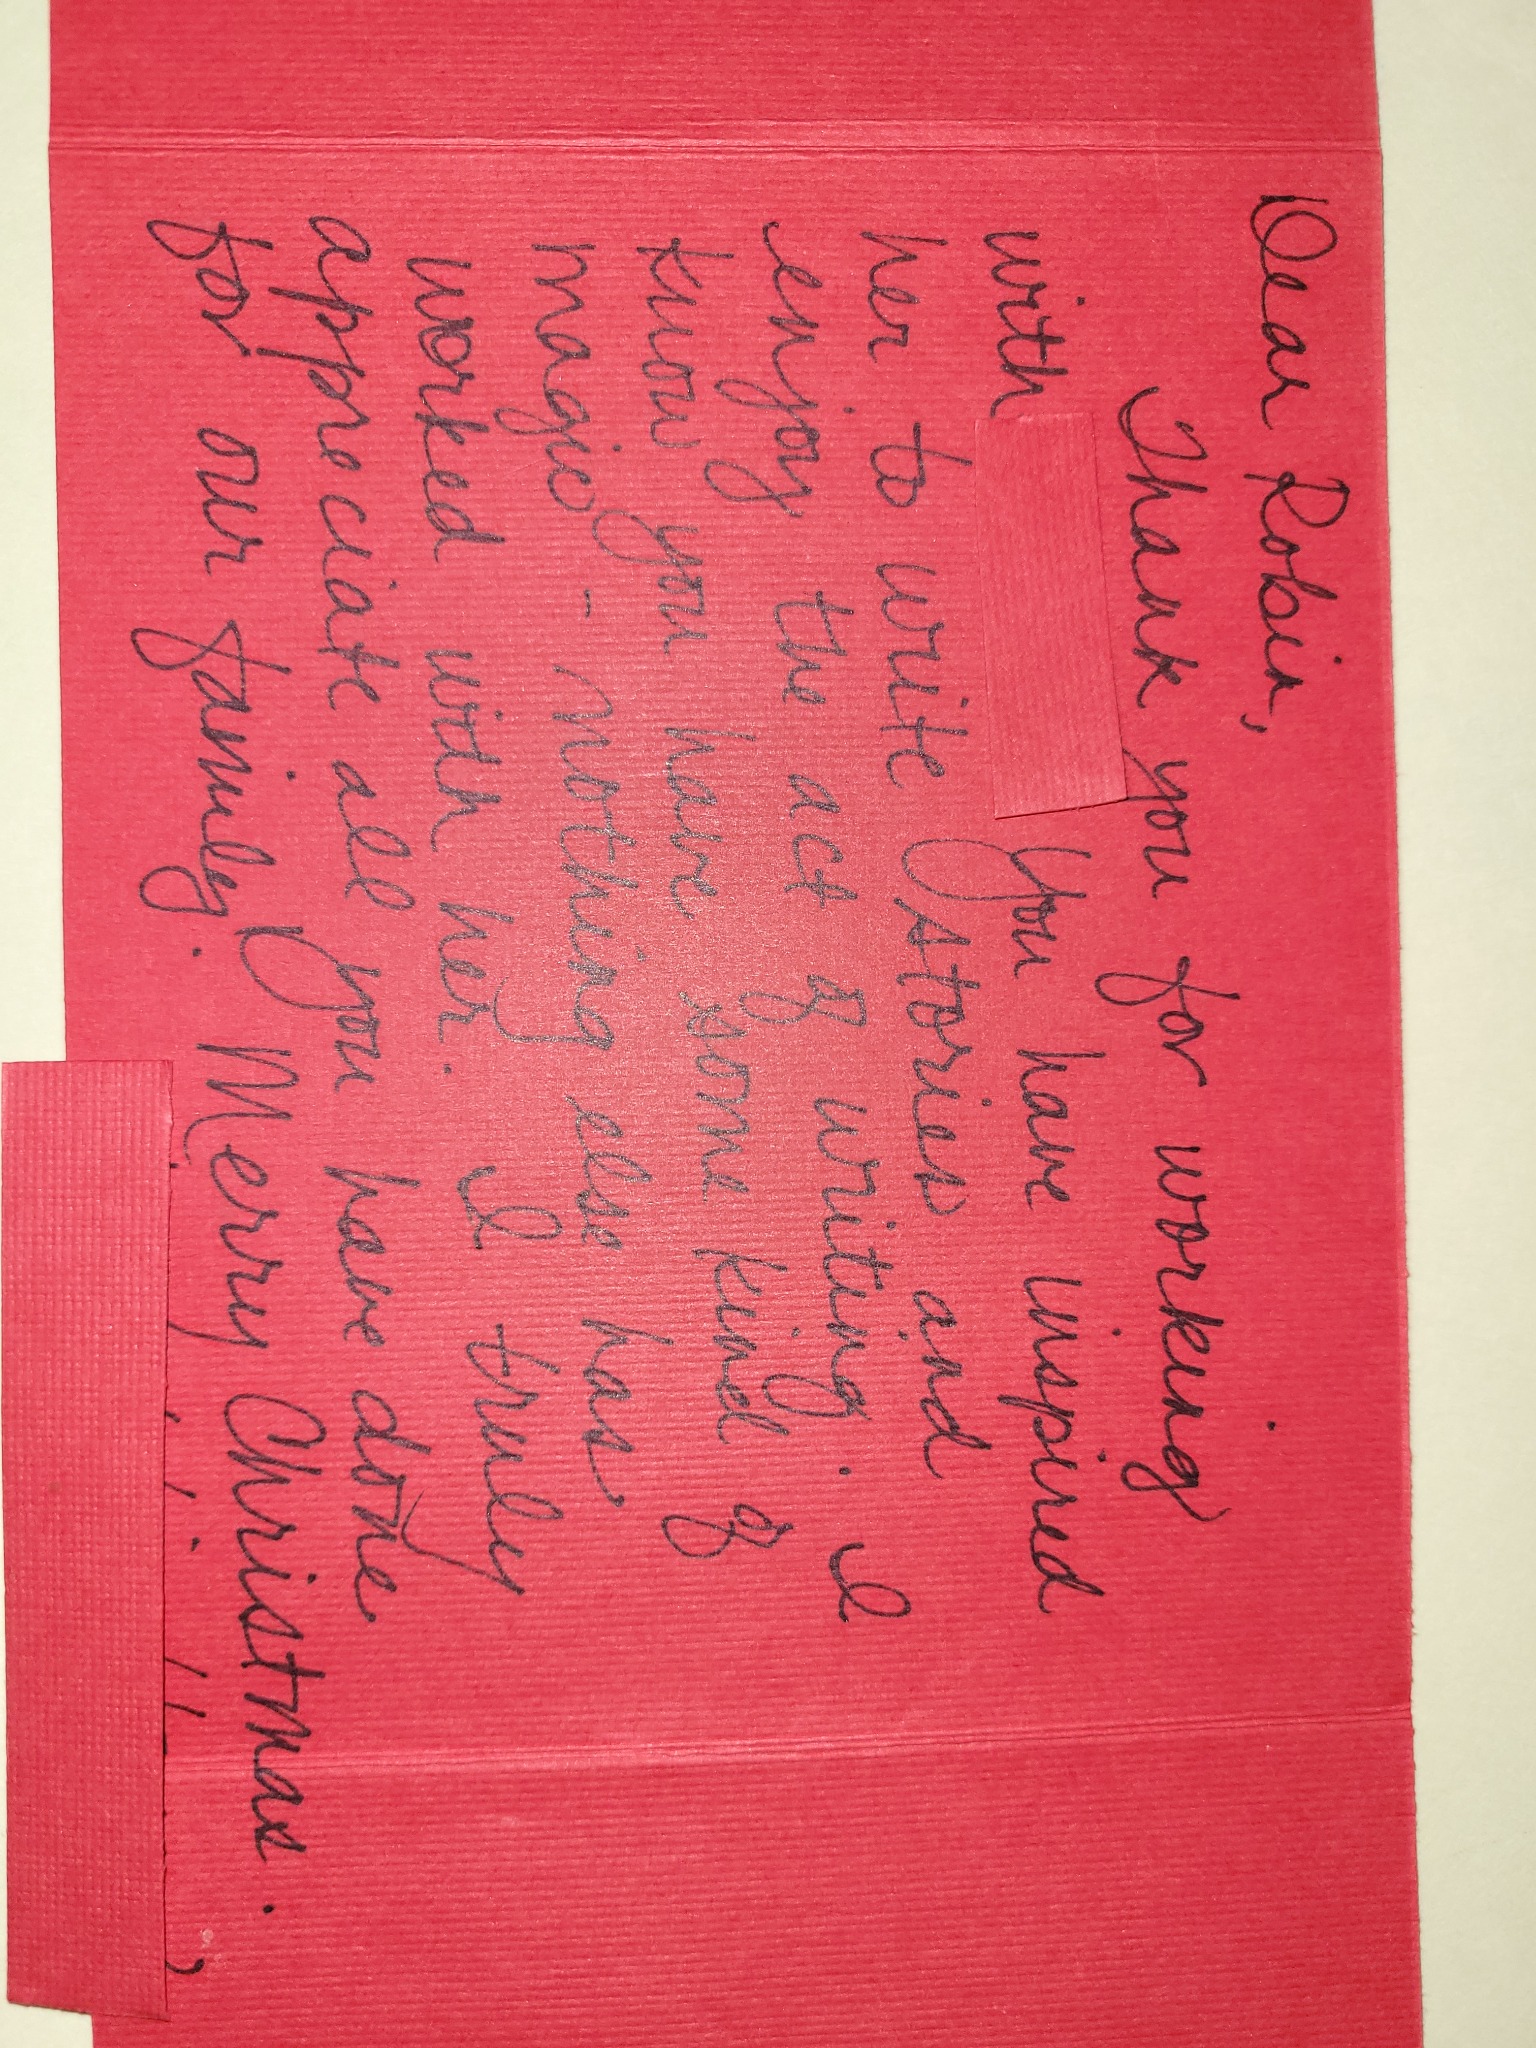 Dear Robin,
Thank you for working
with You have inspired
her to write stories and
enjoy the act of writing. I
know you have some kind of
magic - nothing else has
worked with her. I truly
appreciate all you have done
for our family. Merry Christmas.